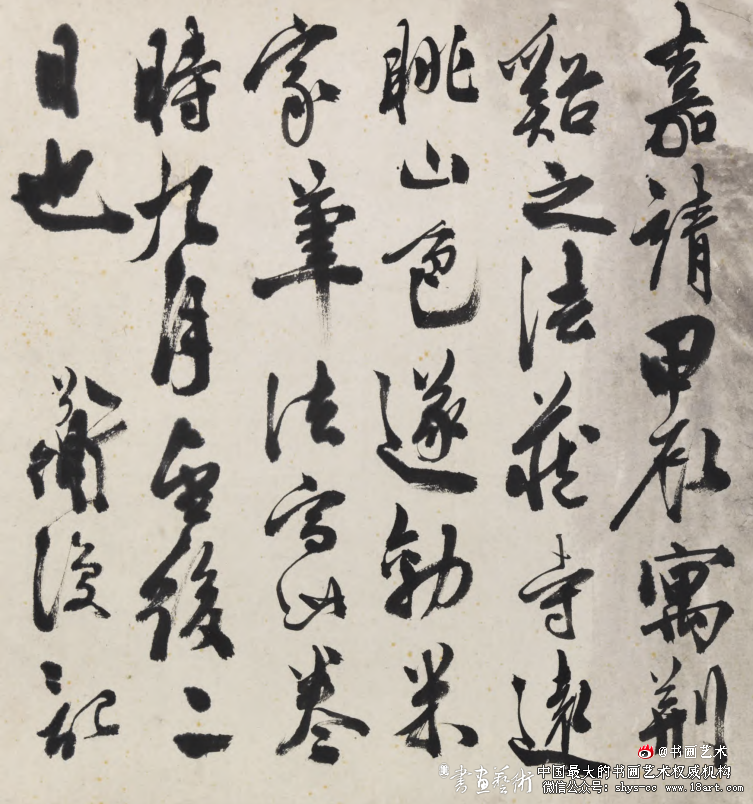 嘉靖甲辰寓荆
谿之法藏寺遠
眺山色遂効米
家筆法寫此卷
時九月望後二
日也 衟復記
@书画艺术
書畫藝術
中国最大的书画艺术权威机构
微信公众号：shys-cc www.18art.com